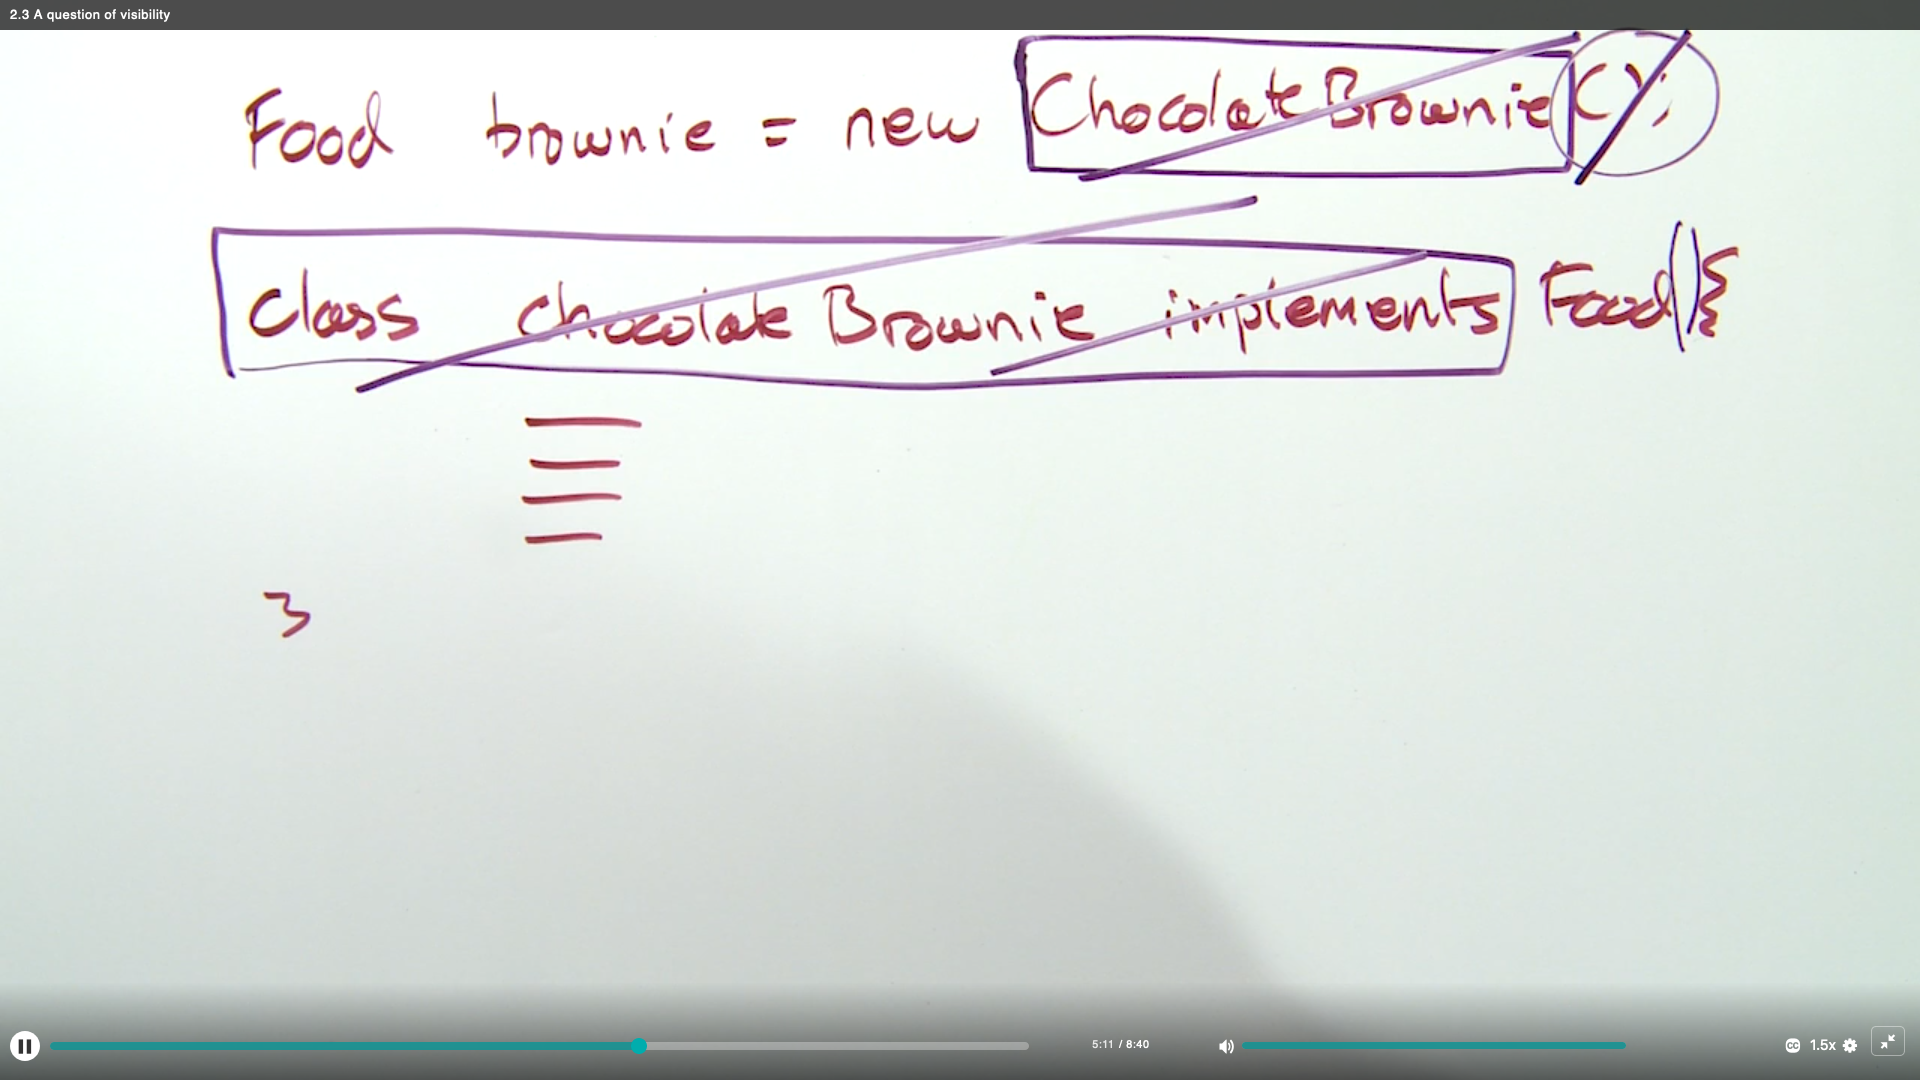 2.3 A question of visibility
Food brownie = new ChocolateBrownie();
class chocolateBrownie implements Food(){
}
5:11 / 8:40
CC 1.5x